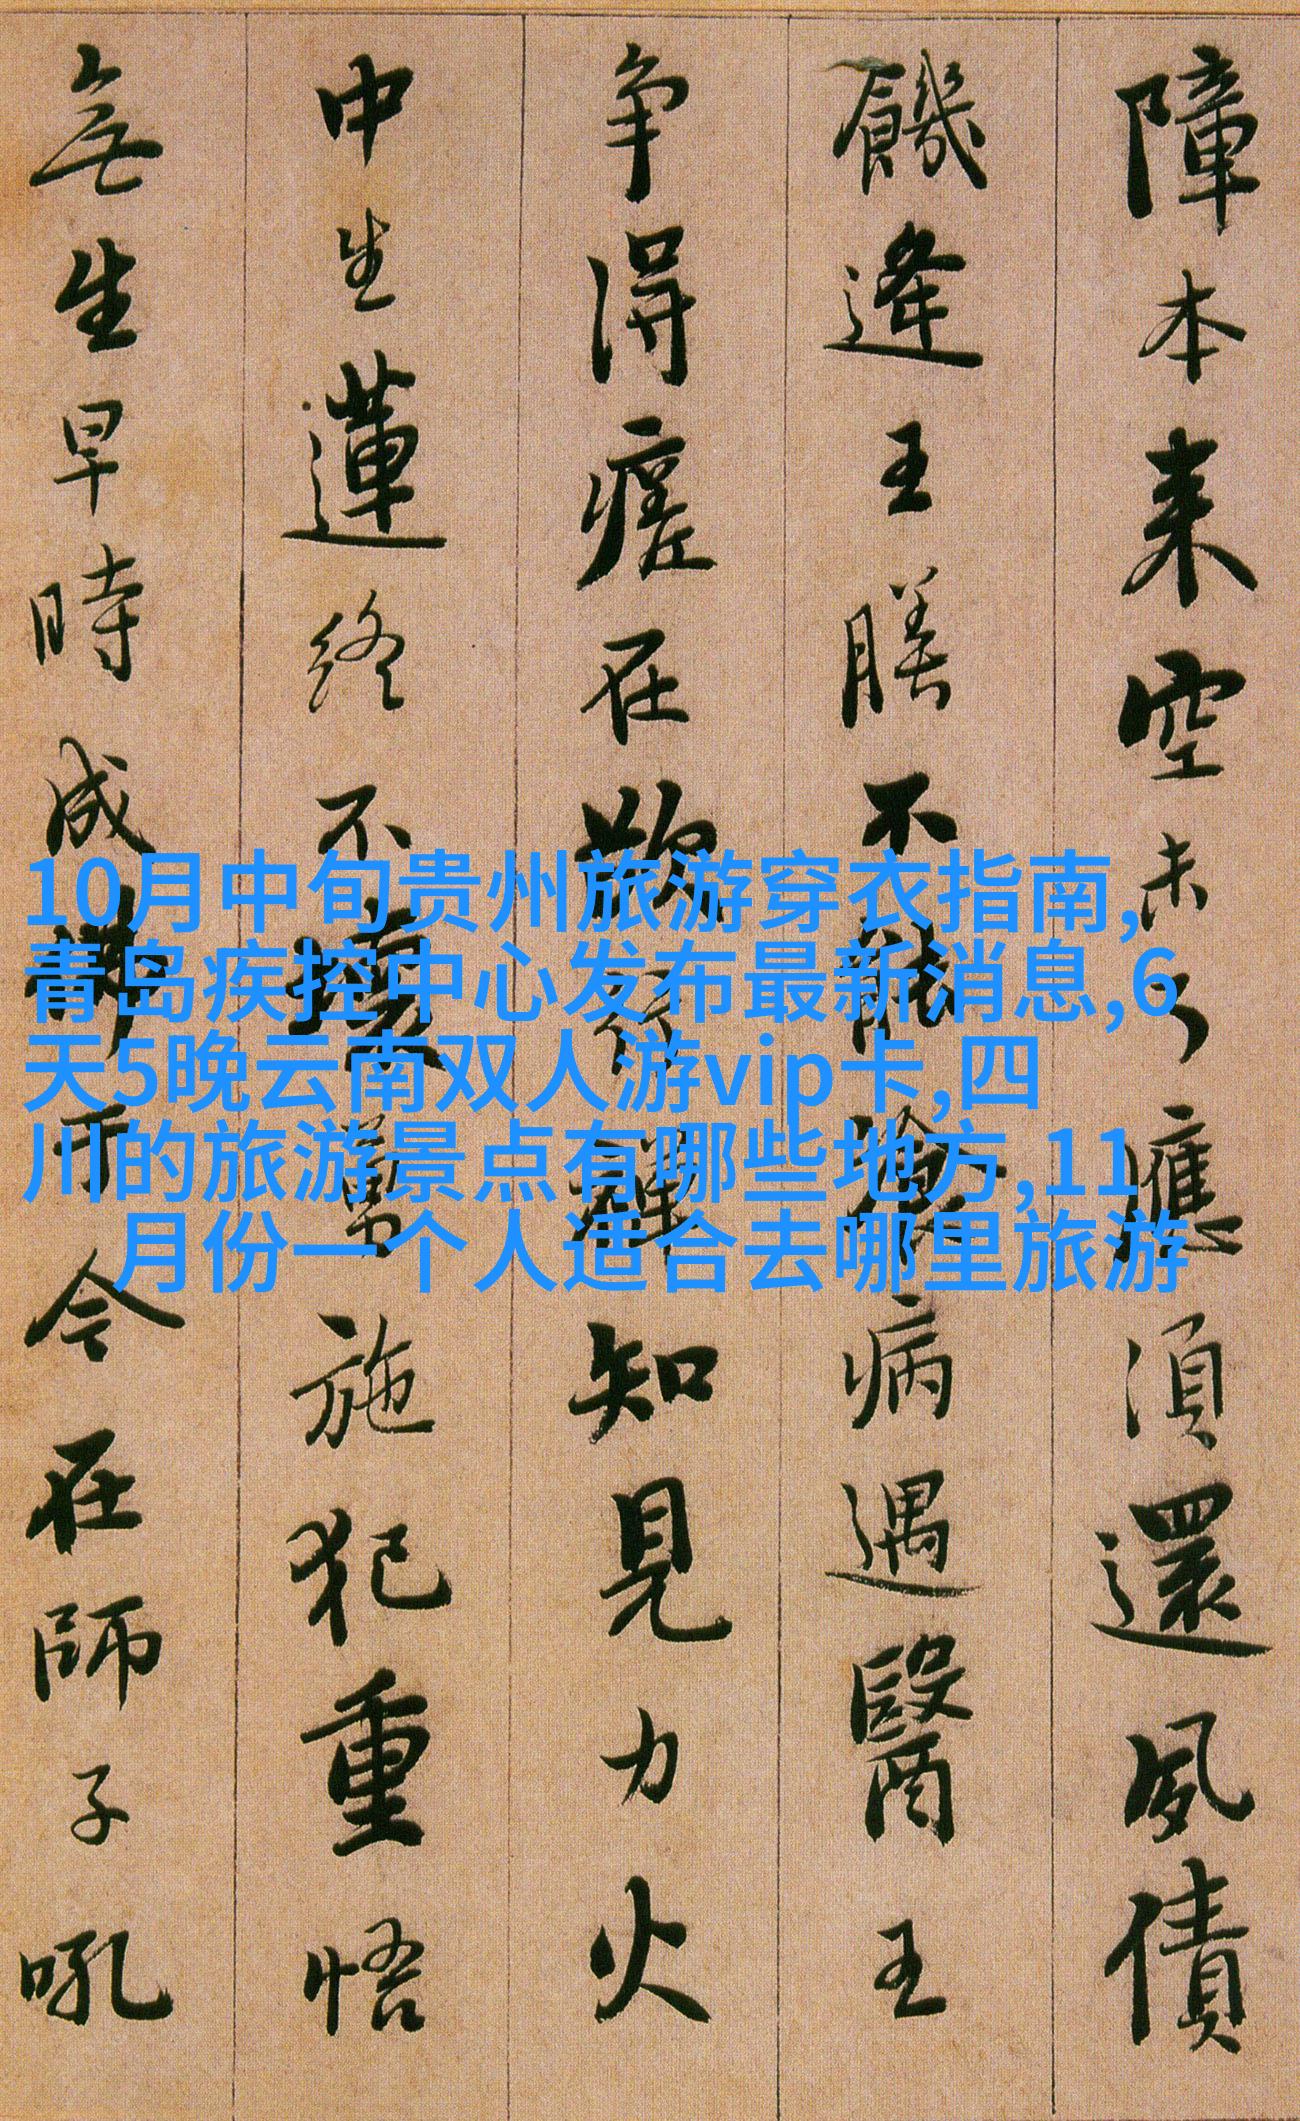 障本来空未了應湏還夙債
饑逢王膳不能飡病遇醫王
争得瘥在欲行禪知見力火
中生蓮終不壞勇施犯重悟
無生早時成佛于今在師子吼
10月中旬贵州旅游穿衣指南,
青岛疾控中心发布最新消息,6
天5晚云南双人游vip卡,四
川的旅游景点有哪些地方,11
月份一个人适合去哪里旅游